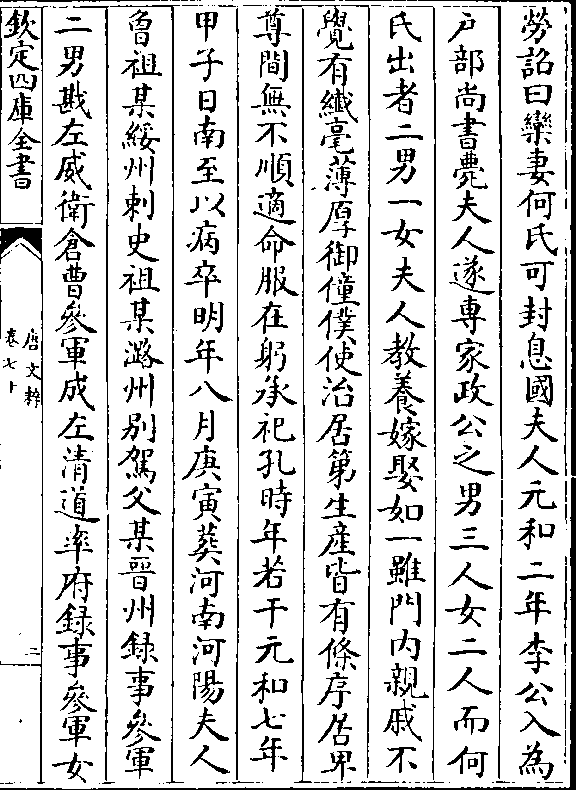 勞詔曰欒妻何氏可封息國夫人元和二年李公入為
户部尚書薨夫人遂專家政公之男三人女二人而何
氏出者二男一女夫人教養嫁娶如一雖門内親戚不
覺有纖毫薄厚御僮僕使治居第生産皆有條序居卑
尊間無不順適命服在躬承祀孔時年若干元和七年
甲子日南至以病卒明年八月庚寅葬河南河陽夫人
曾祖某綏州刺史祖某潞州别駕父某晉州録事參軍
二男戡左威衛倉曹參軍成左清道率府録事參軍女
欽定四庫全書
唐文粹
卷七十
二